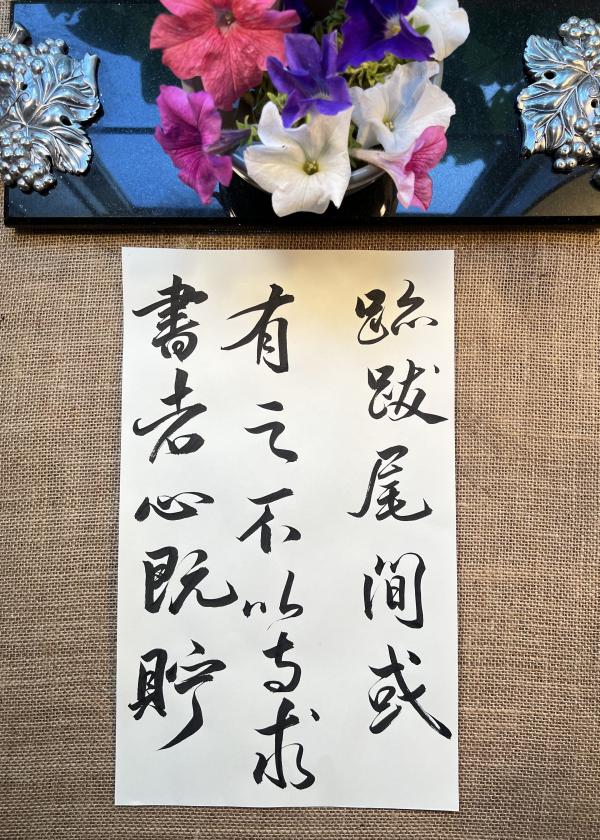 跡跋尾間或
有之不以与求
書者心既貯